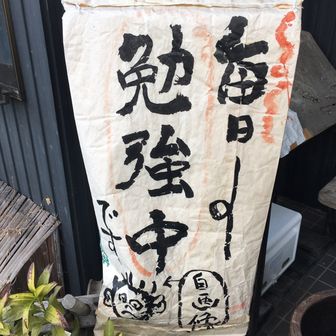 毎日
勉強中
です
自画像